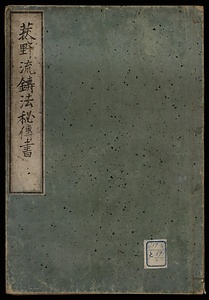 荻野流鋳法秘傳書